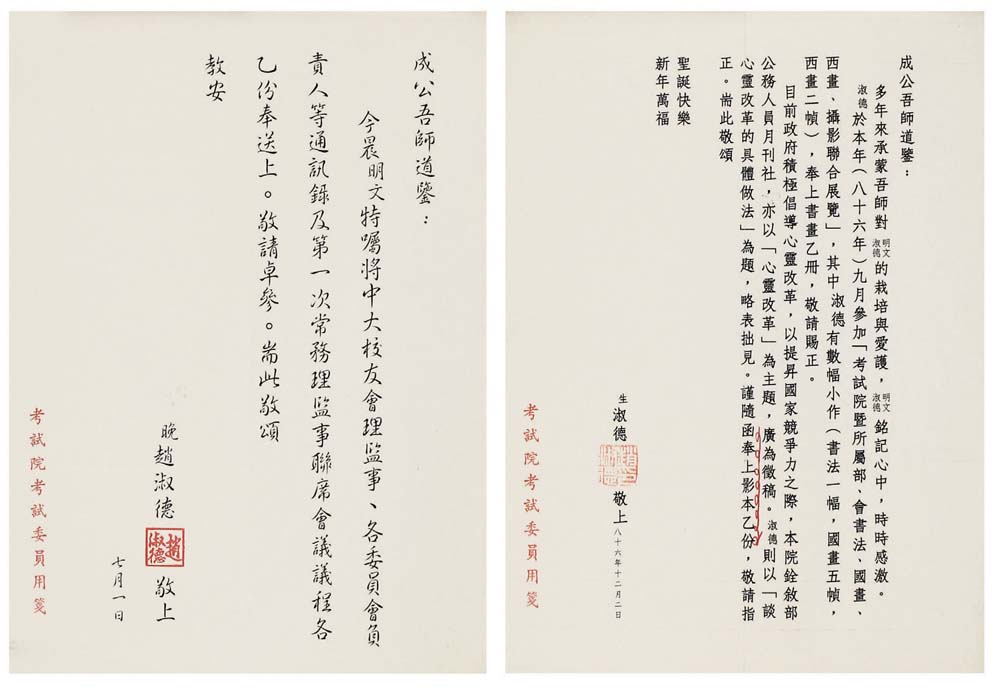 成公吾師道鑒：
今晨明文特囑將中大校友會理監事、各委員會負
責人等通訊錄及第一次常務理監事聯席會議議程各
乙份奉送上。敬請卓參。耑此敬頌
教安
晚趙淑德
趙淑德
敬上
七月一日
考試院考試委員用箋
成公吾師道鑒：
多年來承蒙吾師對明文淑德的栽培與愛護，明文淑德銘記心中，時時感激。
淑德於本年（八十六年）九月參加「考試院暨所屬部、會書法、國畫、
西畫、攝影聯合展覽」，其中淑德有數幅小作（書法一幅，國畫五幀，
西畫二幀），奉上書畫乙冊，敬請賜正。
目前政府積極倡導心靈改革，以提昇國家競爭力之際，本院銓敘部
公務人員月刊社，亦以「心靈改革」為主題，廣為徵稿。淑德則以「談
心靈改革的具體做法」為題，略表拙見。謹隨函奉上影本乙份，敬請指
正。耑此敬頌
聖誕快樂
新年萬福
生淑德
敬上八十六年十二月二日
考試院考試委員用箋